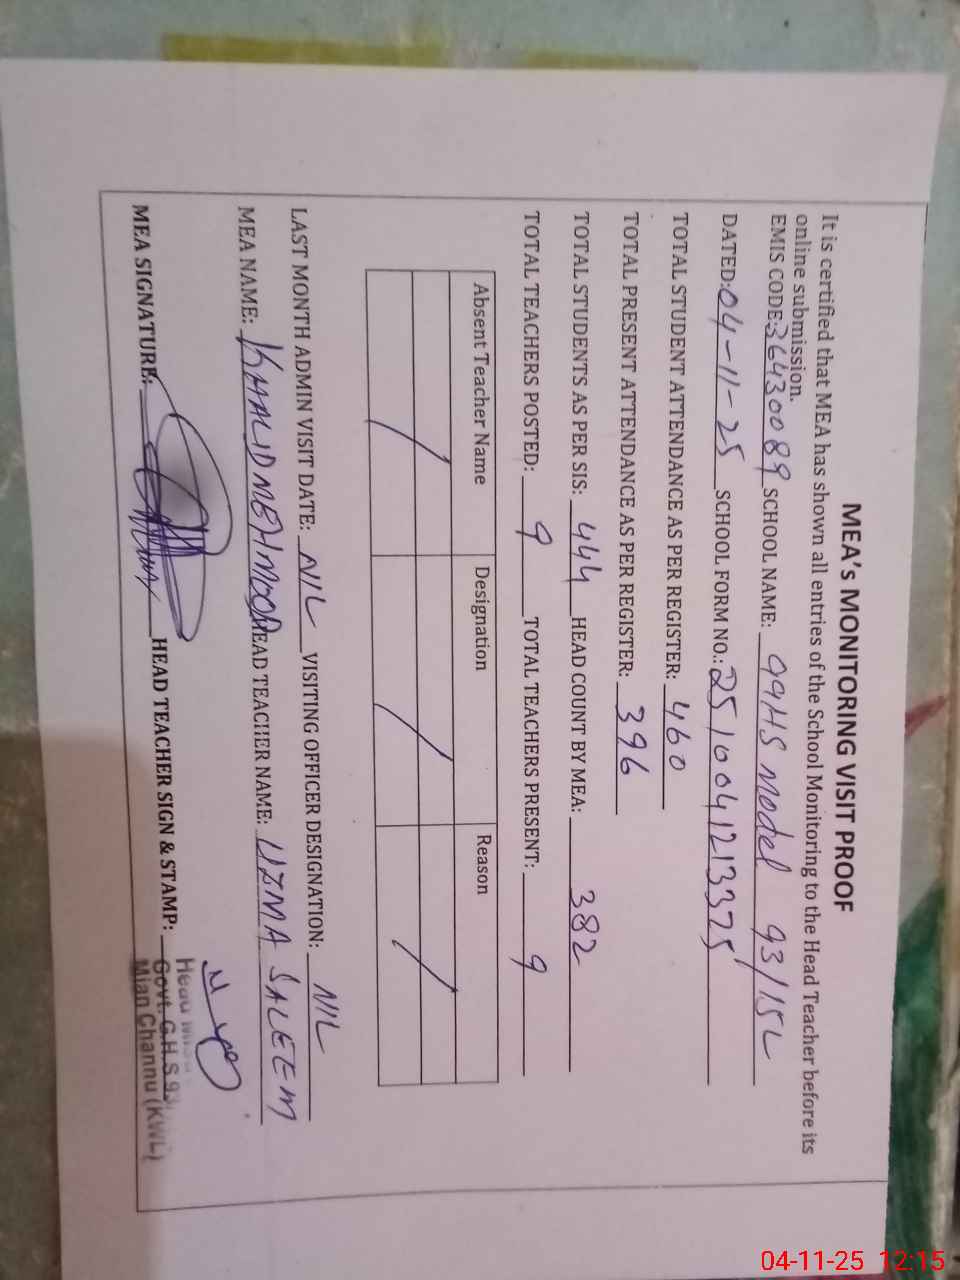 MEA's MONITORING VISIT PROOF
It is certified that MEA has shown all entries of the School Monitoring to the Head Teacher before its
online submission.
EMIS CODE: 36430089 SCHOOL NAME: GGHS Model 93/15L
DATED: 04-11-25 SCHOOL FORM NO.: 2510041213375
TOTAL STUDENT ATTENDANCE AS PER REGISTER: 460
TOTAL PRESENT ATTENDANCE AS PER REGISTER: 396
TOTAL STUDENTS AS PER SIS: 444 HEAD COUNT BY MEA: 382
TOTAL TEACHERS POSTED: 9 TOTAL TEACHERS PRESENT: 9
Absent Teacher Name Designation Reason
LAST MONTH ADMIN VISIT DATE: NIL VISITING OFFICER DESIGNATION: NIL
MEA NAME: KHALID MEHMOOD HEAD TEACHER NAME: UZMA SALEEM
MEA SIGNATURE: HEAD TEACHER SIGN & STAMP:
Head
Govt. G.H.S.93
Mian Channu (KWL)
04-11-25 12:15